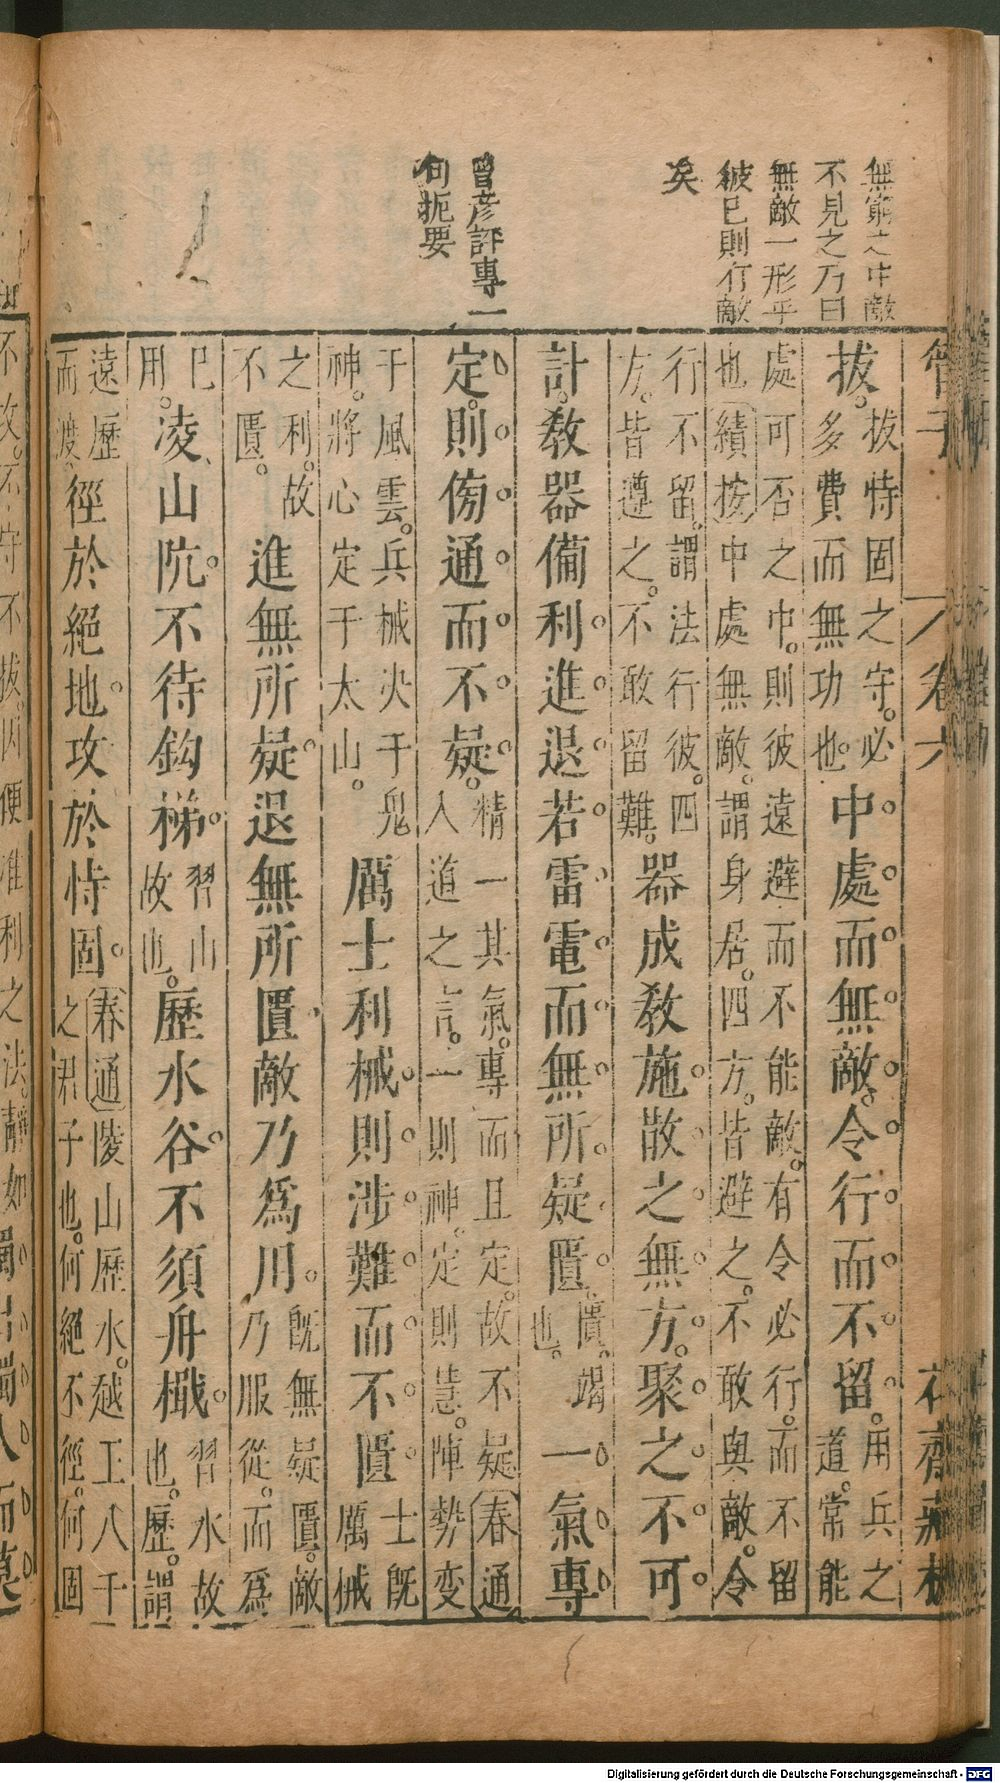 無窮之中敵
不見之乃曰
無敵一形乎
彼已則有敵
矣
曾彥評專一
句扼要
管子
卷六
拔。拔恃固之守。必多費而無功也。中處而無敵。令行而不留。用兵之道。常能
處可否之中。則彼遠避而不能敵。有令必行。而不留也。績按中處無敵。謂身居。四方。皆避之。不敢與敵。令
行不留。謂法行彼。四方。皆遵之。不敢留難。器成教施。散之無方。聚之不可
計。教器備利。進退若雷電。而無所疑匱。匱。竭也。一氣專
定。則傍通而不疑。精一其氣。專而且定。故不疑春通人道之言。一則神。定則慧。陣勢变
于風雲。兵械决于鬼神。將心定于太山。厲士利械。則涉難而不匱。士既厲械
之利。故不匱。進無所疑。退無所匱。敵乃爲用。既無疑匱。敵乃服從。而爲
已用。凌山阬。不待鈎梯。習山故也。歷水谷。不須舟檝。習水故也。歷。謂
遠歷而渡。徑於絕地。攻於恃固。春通陵山歷水。越王八千之君子也。何絕不徑。何固
Digitalisierung gefördert durch die Deutsche Forschungsgemeinschaft - DFG